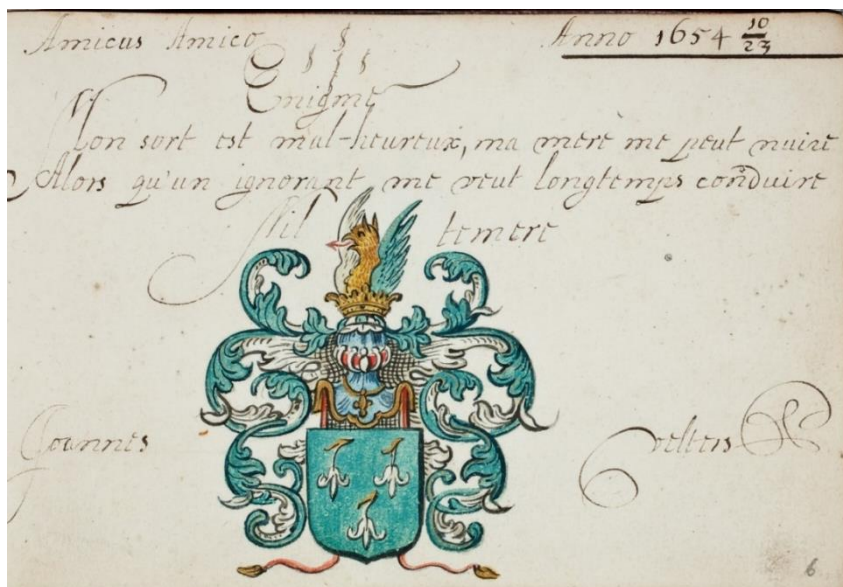 Amicus Amico
Anno 1654 10/23
Enigme
Mon sort est mal-heureux, ma mere me peut nuire
Alors qu'un ignorant me veut longtemps conduire
Nil temere
Joannes
6